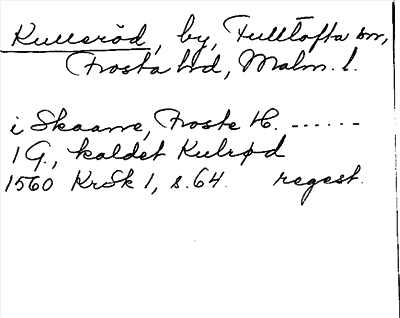 Kullsröd, by, Fulltofta sn,
Frosta hd, Malm. l.
i Skaane, Froste H. ------
1 G., kaldet Kulrød
1560 KrSk 1, s. 64. regest.